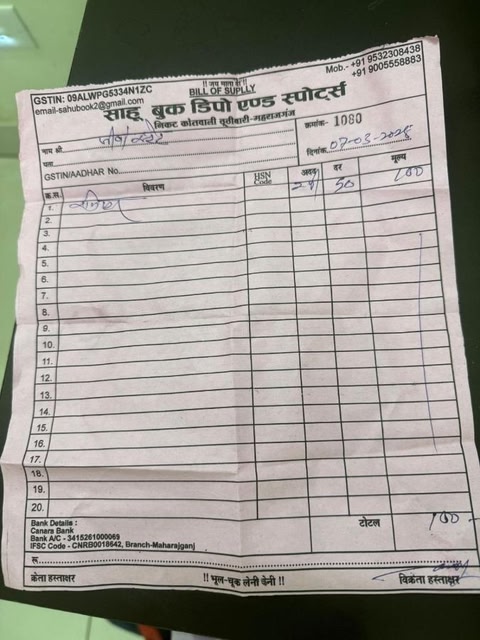 !! जय माता दी !!
GSTIN: 09ALWPG5334N1ZC BILL OF SUPLLY Mob.- +91 9532308438
email-sahubook2@gmail.com +91 9005558883
साहू बुक डिपो एण्ड स्पोर्ट्स
निकट कोतवाली ठूठीबारी-महराजगंज
क्रमांक- 1080
नाम श्री
पता दिनांक. 07-03-2025
GSTIN/AADHAR No.
क्र.स. विवरण HSN Code अदद दर मूल्य
1. 50 100
2.
3.
4.
5.
6.
7.
8.
9.
10.
11.
12.
13.
14.
15.
16.
17.
18.
19.
20.
Bank Details :
Canara Bank
Bank A/C - 3415261000069
IFSC Code - CNRB0018642, Branch-Maharajganj
टोटल 100
रू.
क्रेता हस्ताक्षर !! भूल-चूक लेनी देनी !! विक्रेता हस्ताक्षर